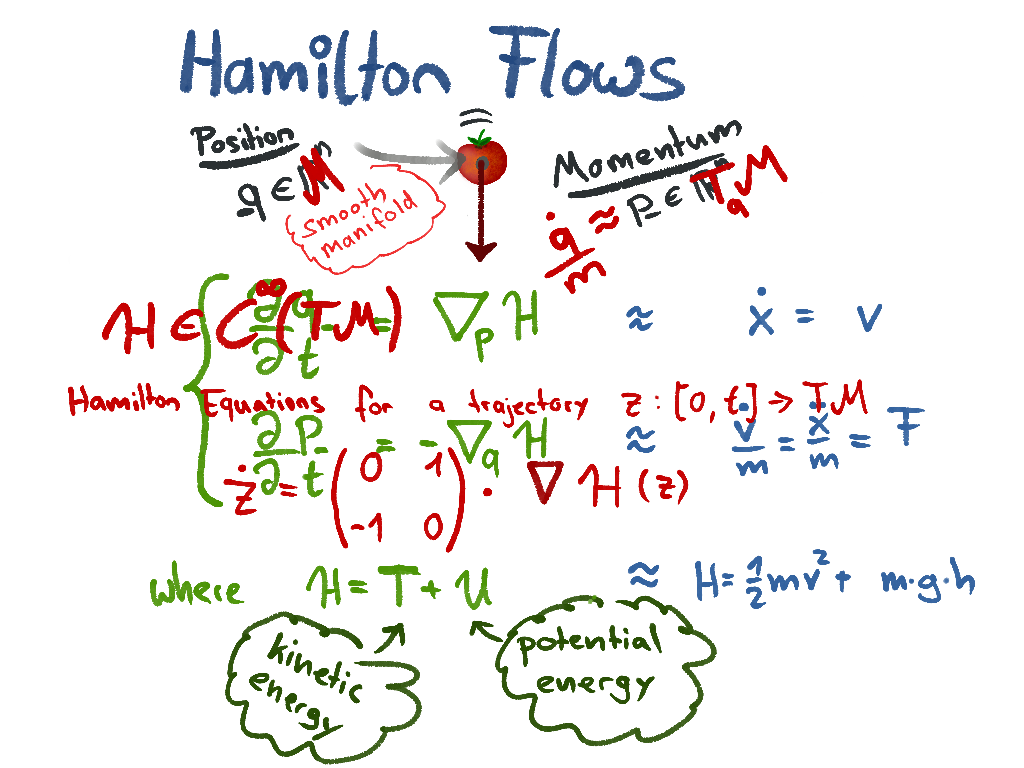 Hamilton Flows
Position
q ∈ ℝⁿ M
smooth
manifold
Momentum
q̇/m ≈ p ∈ ℝⁿ T_qM
∂q/∂t = ∇_p H ≈ ẋ = v
H ∈ C^∞(TM)
Hamilton Equations for a trajectory z : [0, t] → TM
∂p/∂t = -∇_q H ≈ v̇/m = ẍ/m = F
ż = (0 1
-1 0) · ∇ H(z)
where H = T + U ≈ H = ½mv² + m·g·h
kinetic
energy
potential
energy